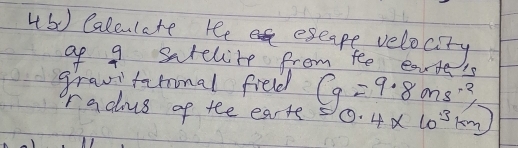 4b) Calculate the escape velocity
of a satellite from the earth's
gravitational field (g = 9.8ms⁻²,
radius of the earth = 0.4 x 10⁻³ km)